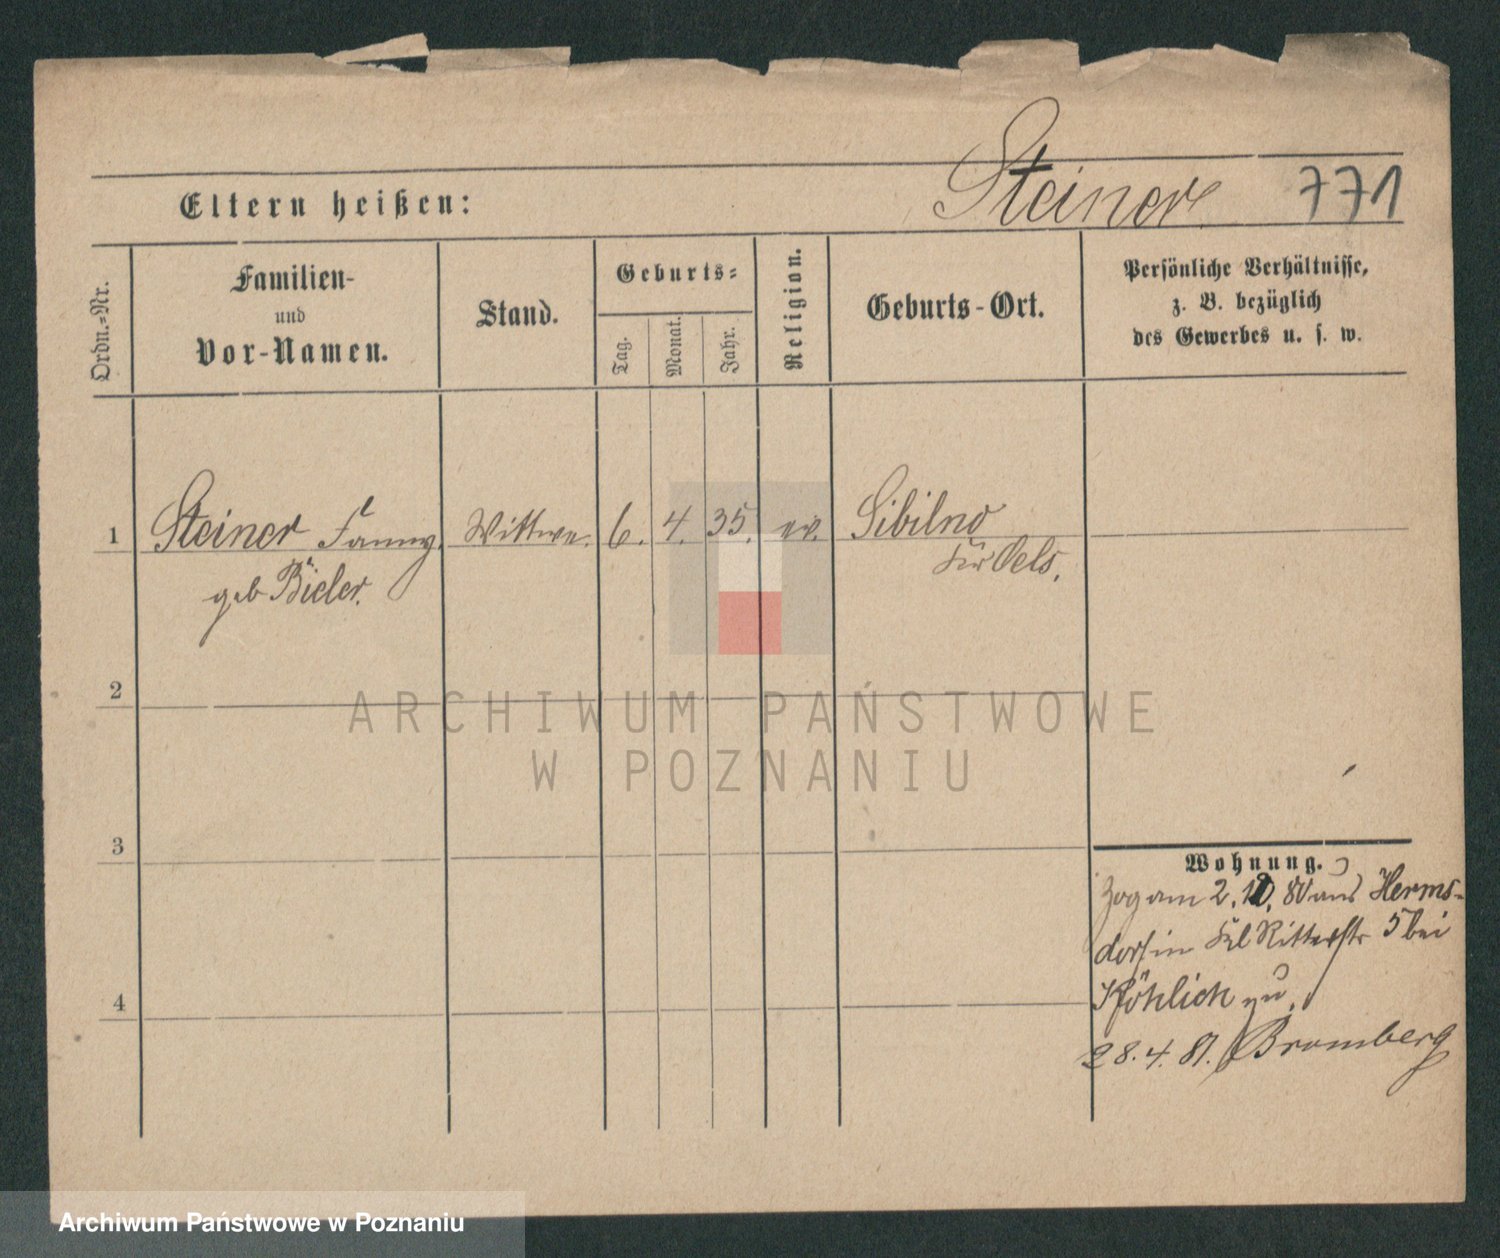 Steiner 771
Eltern heißen:
Ordn.=Nr.
Familien-
und
Vor-Namen.
Stand.
Geburts=
Tag.
Monat.
Jahr.
Religion.
Geburts-Ort.
Persönliche Verhältnisse,
z. B. bezüglich
des Gewerbes u. s. w.
1 Steiner Fanny, Wittwe. 6. 4. 35. ev. Sibilno
geb Bieler. Kr Oels.
2
ARCHIWUM PAŃSTWOWE
W POZNANIU
3
Wohnung.
Zog am 2. 10. 80 aus Herms-
dorf in Kl Ritterstr 5 bei
zu.
4
28.4.81. Bromberg
Archiwum Państwowe w Poznaniu